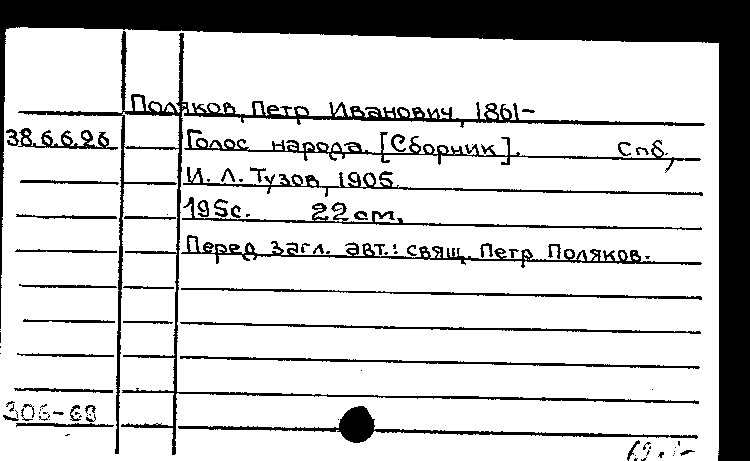 Поляков, Петр Иванович, 1861-
38.6.6.26 Голос народа. [Сборник]. Спб.,
И. Л. Тузов, 1905.
195с. 22 cm.
Перед загл. авт.: свящ. Петр Поляков.
306-68